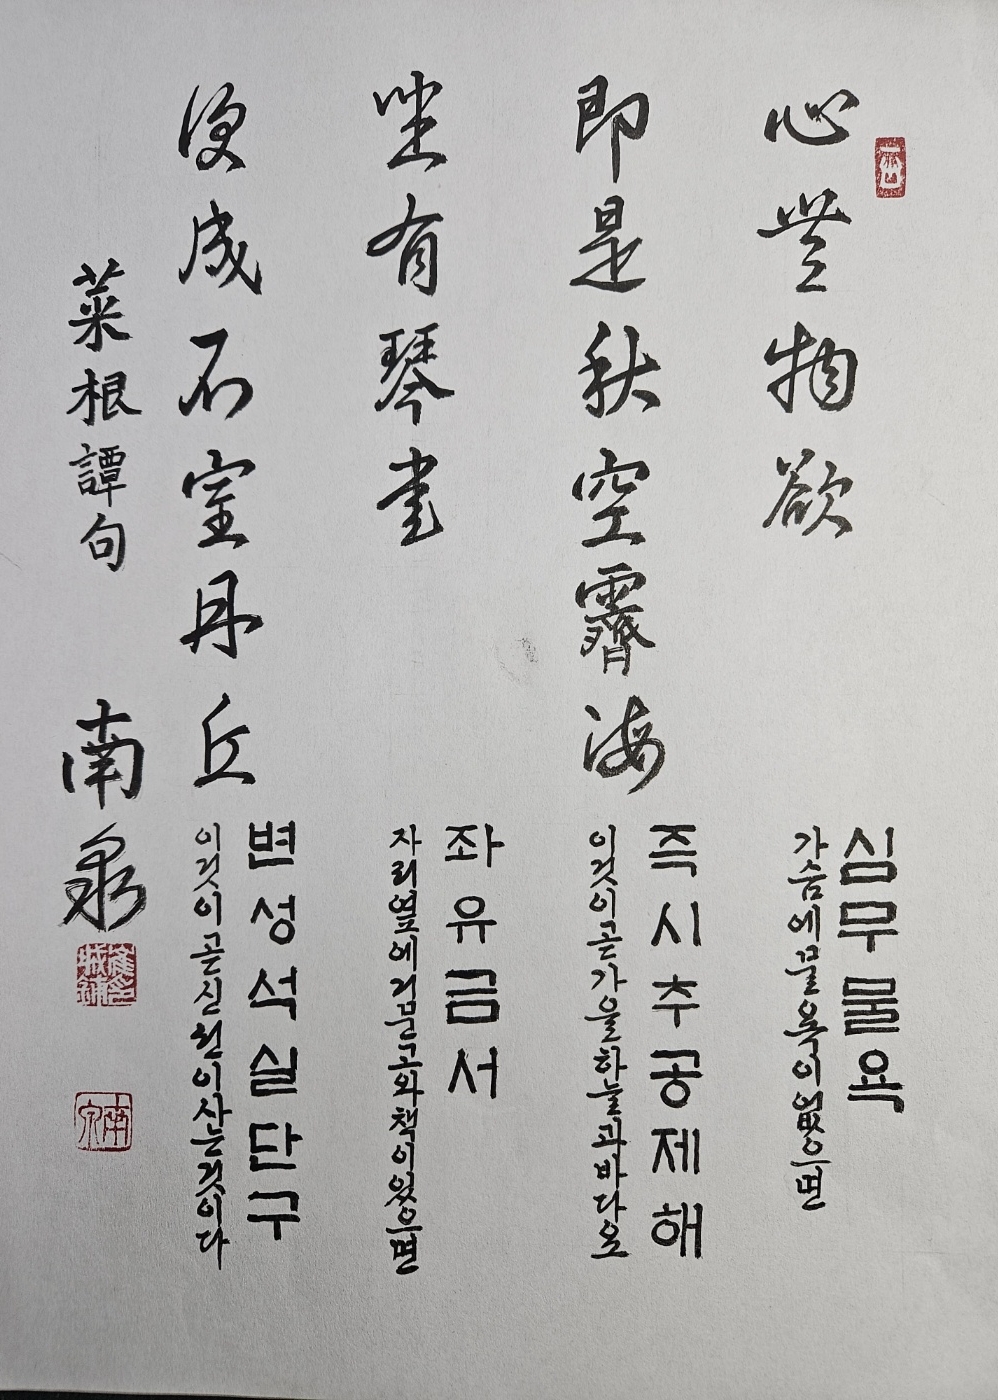 心無物欲
심무물욕
가슴에물욕이없으면
即是秋空霽海
즉시추공제해
이것이곧가을하늘과바다요
坐有琴書
좌유금서
자리옆에거문고와책이있으면
便成石室丹丘
변성석실단구
이것이곧신선이사는것이다
菜根譚句
南泉
南泉